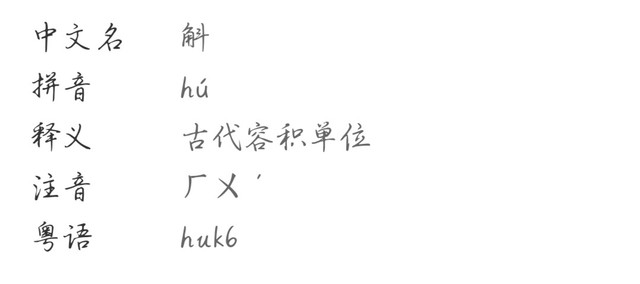 中文名 斛
拼音 hú
释义 古代容积单位
注音 ㄏㄨˊ
粤语 huk6